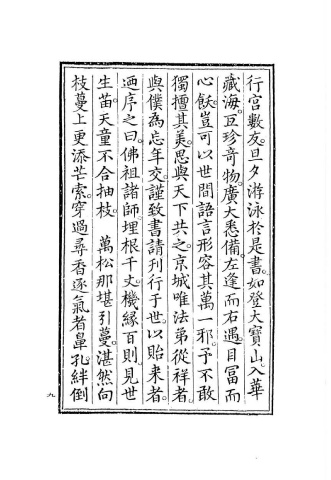 行宮數友。旦夕游泳於是書。如登大寶山。入華
藏海。互珍奇物。廣大悉備。左逢而右遇。目富而
心飫。豈可以世間語言形容其萬一邪。予不敢
獨擅其美。思與天下共之。京城唯法弟從祥者。
與僕為忘年交謹致書請刊行于世。以貽来者。
迺序之曰。佛祖諸師。埋根千丈。機緣百則。見世
生苗。天童不合抽枝　萬松那堪引蔓。湛然向
枝蔓上更添芒索。穿過尋香逐氣者鼻孔。絆倒
九